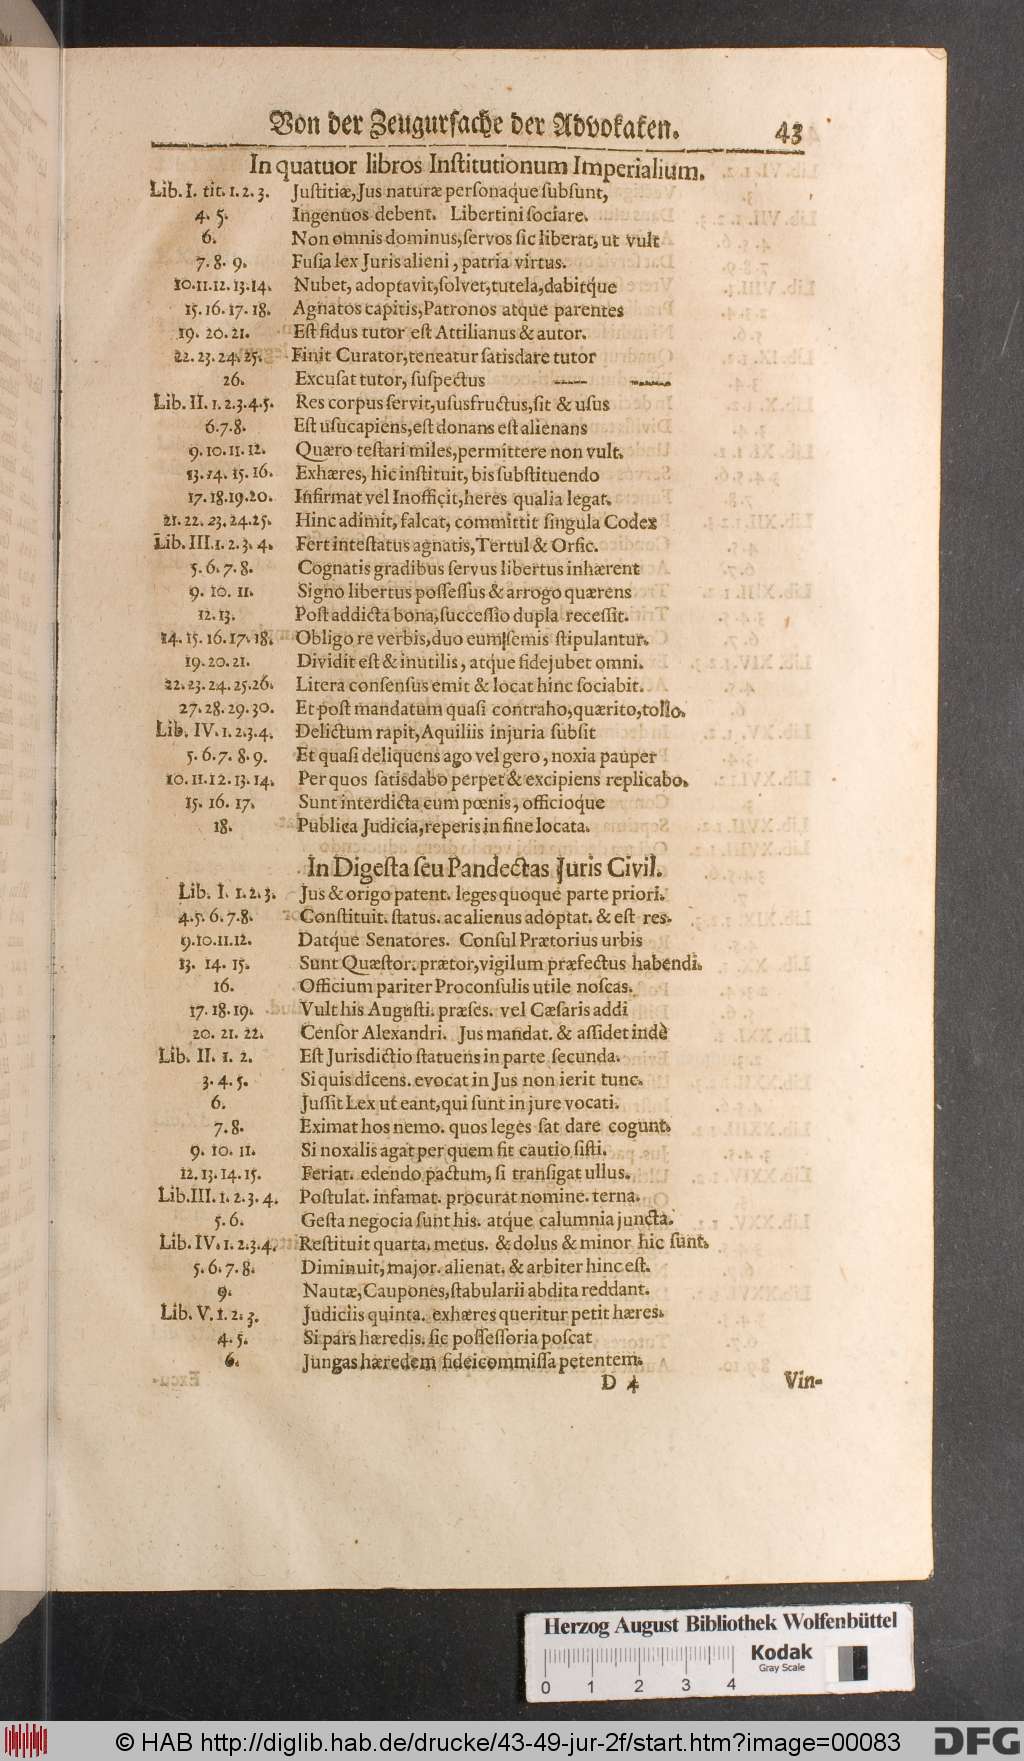 Von der Zeugursache der Advokaten. 43
In quatuor libros Institutionum Imperialium.
Lib. I. tit. 1. 2. 3. Justitiæ, Jus naturæ personaque subsunt,
4. 5. Ingenuos debent. Libertini sociare.
6. Non omnis dominus, servos sic liberat, ut vult
7. 8. 9. Fusia lex Juris alieni, patria virtus.
10. 11. 12. 13. 14. Nubet, adoptavit, solvet, tutela, dabitque
15. 16. 17. 18. Agnatos capitis, Patronos atque parentes
19. 20. 21. Est fidus tutor est Attilianus & autor.
22. 23. 24. 25. Finit Curator, teneatur satisdare tutor
26. Excusat tutor, suspectus
Lib. II. 1. 2. 3. 4. 5. Res corpus servit, ususfructus, sit & usus
6. 7. 8. Est usucapiens, est donans est alienans
9. 10. 11. 12. Quæro testari miles, permittere non vult.
13. 14. 15. 16. Exhæres, hic instituit, bis substituendo
17. 18. 19. 20. Infirmat vel Inofficit, heres qualia legat.
21. 22. 23. 24. 25. Hinc adimit, falcat, committit singula Codex
Lib. III. 1. 2. 3. 4. Fert intestatus agnatis, Tertul & Orfic.
5. 6. 7. 8. Cognatis gradibus servus libertus inhærent
9. 10. 11. Signo libertus possessus & arrogo quærens
12. 13. Post addicta bona, successio dupla recessit.
14. 15. 16. 17. 18. Obligo re verbis, duo eum semis stipulantur.
19. 20. 21. Dividit est & inutilis, atque fidejubet omni.
22. 23. 24. 25. 26. Litera consensus emit & locat hinc sociabit.
27. 28. 29. 30. Et post mandatum quasi contraho, quærito, tollo.
Lib. IV. 1. 2. 3. 4. Delictum rapit, Aquiliis injuria subsit
5. 6. 7. 8. 9. Et quasi deliquens ago vel gero, noxia pauper
10. 11. 12. 13. 14. Per quos satisdabo perpet & excipiens replicabo.
15. 16. 17. Sunt interdicta cum pœnis, officioque
18. Publica Judicia, reperis in fine locata.
In Digesta seu Pandectas Juris Civil.
Lib. I. 1. 2. 3. Jus & origo patent. leges quoque parte priori.
4. 5. 6. 7. 8. Constituit. status. ac alienus adoptat. & est res.
9. 10. 11. 12. Datque Senatores. Consul Prætorius urbis
13. 14. 15. Sunt Quæstor. prætor, vigilum præfectus habendi.
16. Officium pariter Proconsulis utile noscas.
17. 18. 19. Vult his Augusti. præses. vel Cæsaris addi
20. 21. 22. Censor Alexandri. Jus mandat. & assidet indè
Lib. II. 1. 2. Est Jurisdictio statuens in parte secunda.
3. 4. 5. Si quis dicens. evocat in Jus non ierit tunc.
6. Jussit Lex ut eant, qui sunt in jure vocati.
7. 8. Eximat hos nemo. quos leges sat dare cogunt.
9. 10. 11. Si noxalis agat per quem fit cautio sisti.
12. 13. 14. 15. Feriat. edendo pactum, si transigat ullus.
Lib. III. 1. 2. 3. 4. Postulat. infamat. procurat nomine. terna.
5. 6. Gesta negocia sunt his. atque calumnia juncta.
Lib. IV. 1. 2. 3. 4. Restituit quarta. metus. & dolus & minor hic sunt.
5. 6. 7. 8. Diminuit, major. alienat. & arbiter hinc est.
9. Nautæ, Caupones, stabularii abdita reddant.
Lib. V. 1. 2. 3. Judiciis quinta. exhæres queritur petit hæres.
4. 5. Si pars hæredis. sic possessoria poscat
6. Jungas hæredem fideicommissa petentem.
D 4 Vin-
Herzog August Bibliothek Wolfenbüttel
Kodak
Gray Scale
0 1 2 3 4
© HAB http://diglib.hab.de/drucke/43-49-jur-2f/start.htm?image=00083
DFG